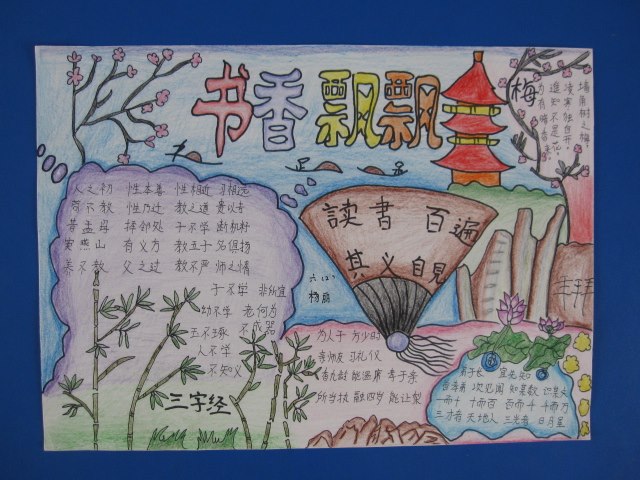 书香飘飘
梅
墙角树之梅
凌寒独自开
谁知不是花
为有暗香来
人之初 性本善 性相近 习相远
苟不教 性乃迁 教之道 贵以专
昔孟母 择邻处 子不学 断机杼
窦燕山 有义方 教五子 名俱扬
养不教 父之过 教不严 师之惰
子不学 非所宜
幼不学 老何为
玉不琢 不成器
人不学
不知义
三字经
讀書百遍
其义自見
六(2)
为人子 方少时
亲师友 习礼仪
香九龄 能温席 孝于亲
所当执 融四岁 能让梨
弟于长 宜先知
首孝弟 次见闻 知某数 识某文
一而十 十而百 百而千 千而万
三才者 天地人 三光者 日月星